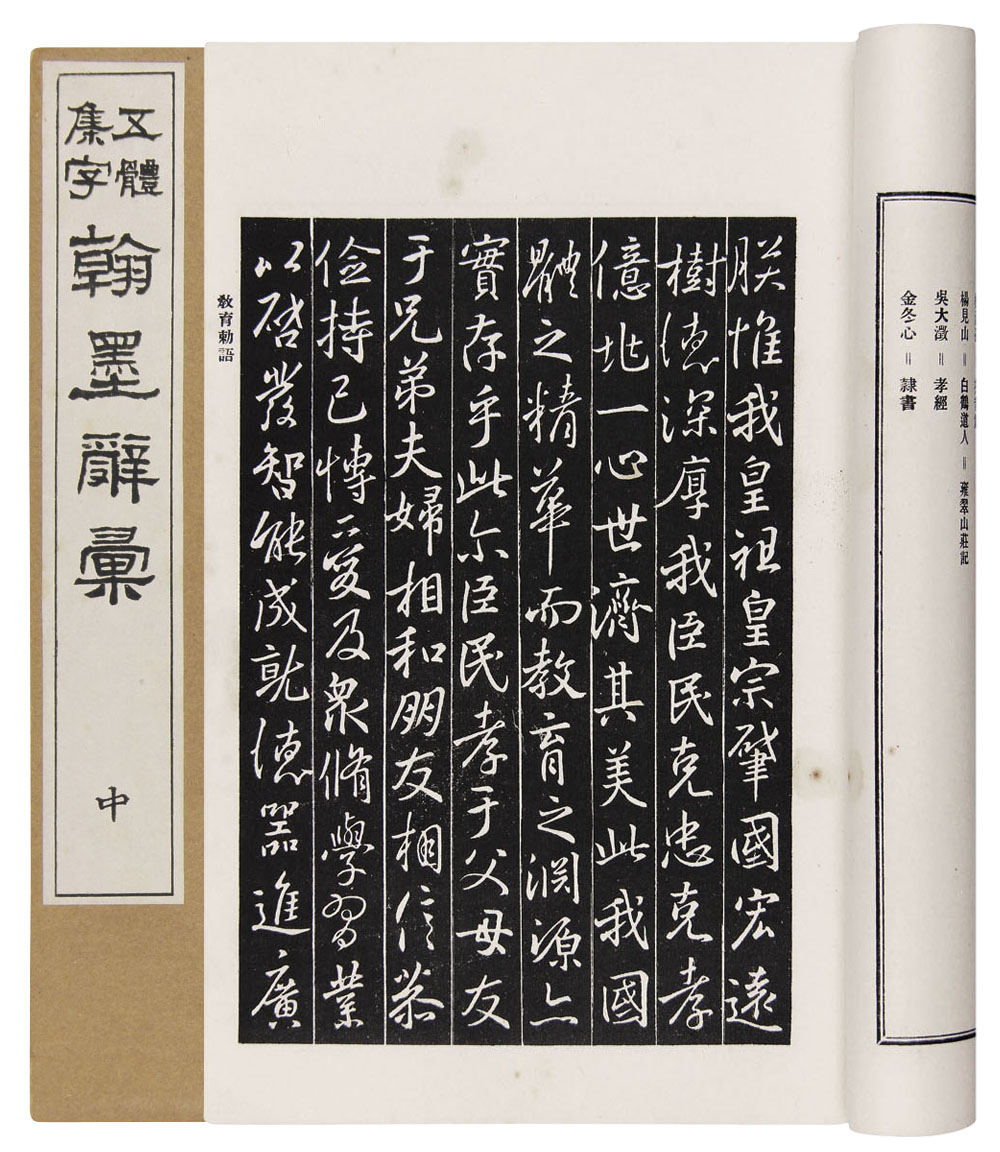 五體
集字
翰墨辭彙
中
楊見山 = 白鶴道人 = 雍翠山莊記
吳大澂 = 孝經
金冬心 = 隷書
朕惟我皇祖皇宗肇國宏遠
樹德深厚我臣民克忠克孝
億兆一心世濟其美此我國
體之精華而教育之淵源亦
實存乎此尔臣民孝于父母友
于兄弟夫婦相和朋友相信恭
儉持己博愛及衆脩學習業
以啓發智能成就德器進廣
教育勅語